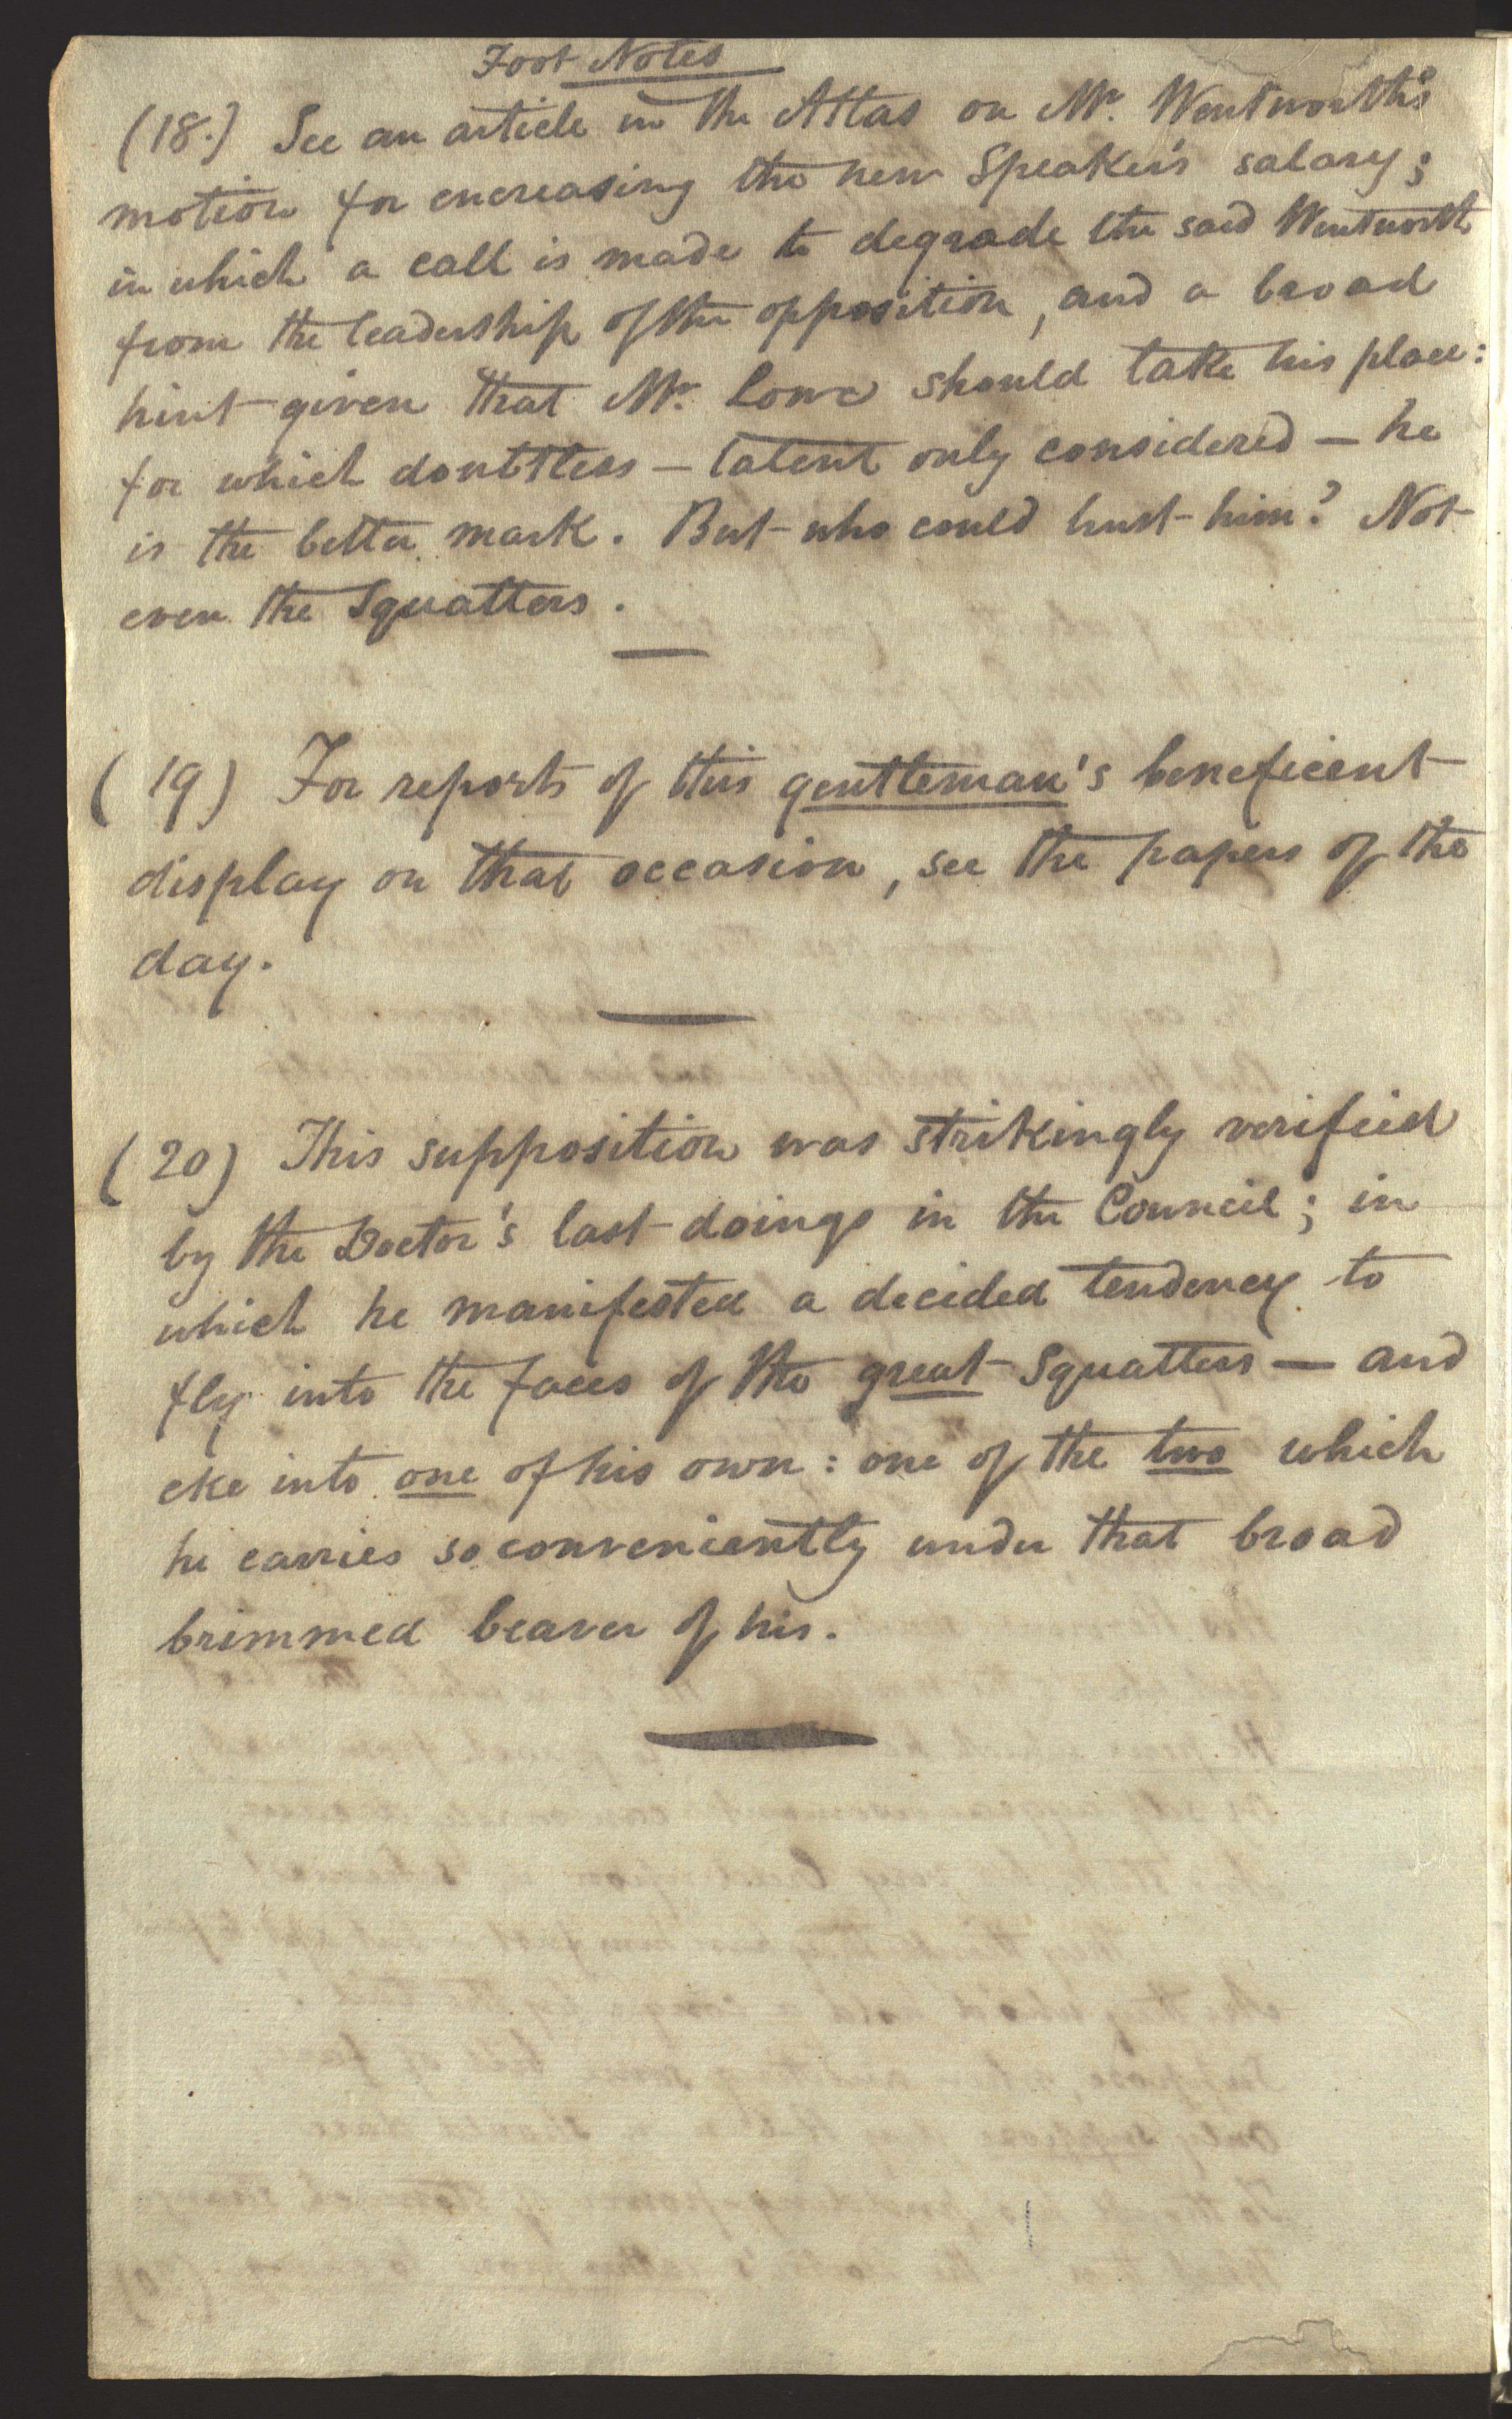 Foot Notes
(18.) See an article in the Atlas on Mr. Wentworth's
motion for encreasing the new Speaker's salary;
in which a call is made to degrade the said Wentworth
from the leadership of the opposition, and a broad
hint given that Mr. Lowe should take his place:
for which doubtless — talent only considered — he
is the better mark. But who could trust him? Not
even the Squatters.
(19) For reports of this gentleman's beneficent
display on that occasion, see the papers of the
day.
(20) This supposition was strikingly verified
by the Doctor's last doings in the Council; in
which he manifested a decided tendency to
fly into the faces of the great Squatters — and
eke into one of his own: one of the two which
he carries so conveniently under that broad
brimmed beaver of his.